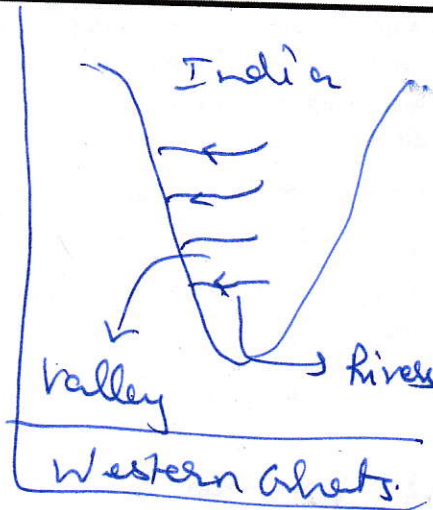 India
Valley
Rivers
Western Ghats.